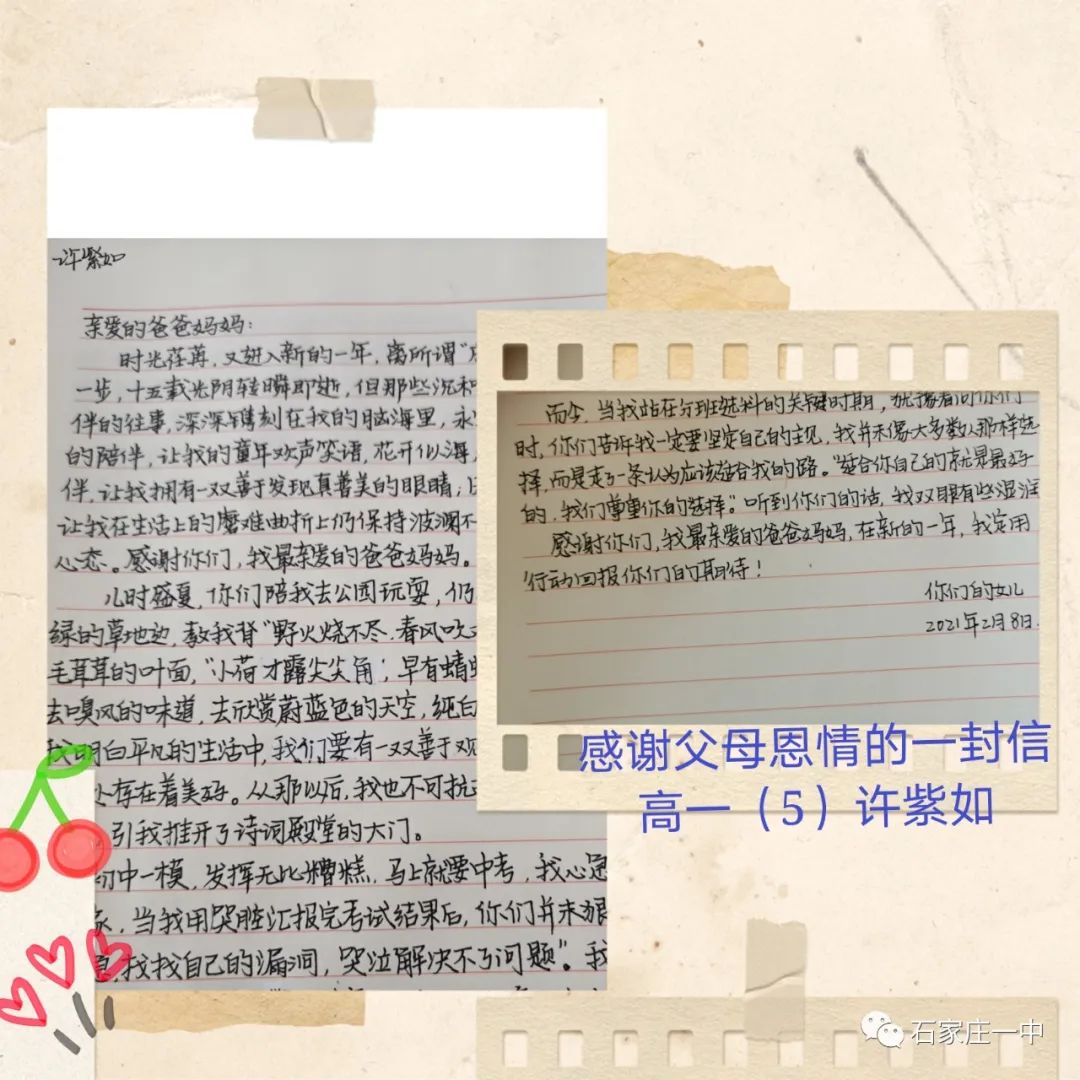 许紫如
亲爱的爸爸妈妈:
时光荏苒,又进入新的一年,离所谓“
一步,十五载光阴转瞬即逝,但那些沉
伴的往事,深深镌刻在我的脑海里,永
的陪伴,让我的童年欢声笑语,花开似海,
伴,让我拥有一双善于发现真善美的眼睛;
让我在生活上的磨难曲折上仍保持波澜不
心态。感谢你们,我最亲爱的爸爸妈妈。
儿时盛夏,你们陪我去公园玩耍,仍
绿的草地边,教我背“野火烧不尽,春风吹
毛茸茸的叶面,“小荷才露尖尖角,早有蜻
去嗅风的味道,去欣赏蔚蓝色的天空,纯白
我明白平凡的生活中,我们要有一双善于观
存在着美好。从那以后,我也不可抗
引我推开了诗词殿堂的大门。
初中一模,发挥无比糟糕,马上就要中考,我心
当我用哭腔汇报完考试结果后,你们并未狠
找找自己的漏洞,哭泣解决不了问题”。我
而今,当我站在分班选科的关键时期,犹豫着问你们
时,你们告诉我一定要坚定自己的主见,我并未像大多数人那样选
择,而是走了一条认为应该适合我的路。“适合你自己的就是最好
的,我们尊重你的选择。”听到你们的话,我双眼有些湿润
感谢你们,我最亲爱的爸爸妈妈,在新的一年,我定用
行动回报你们的期待!
你们的女儿
2021年2月8日.
感谢父母恩情的一封信
高一（5）许紫如
石家庄一中